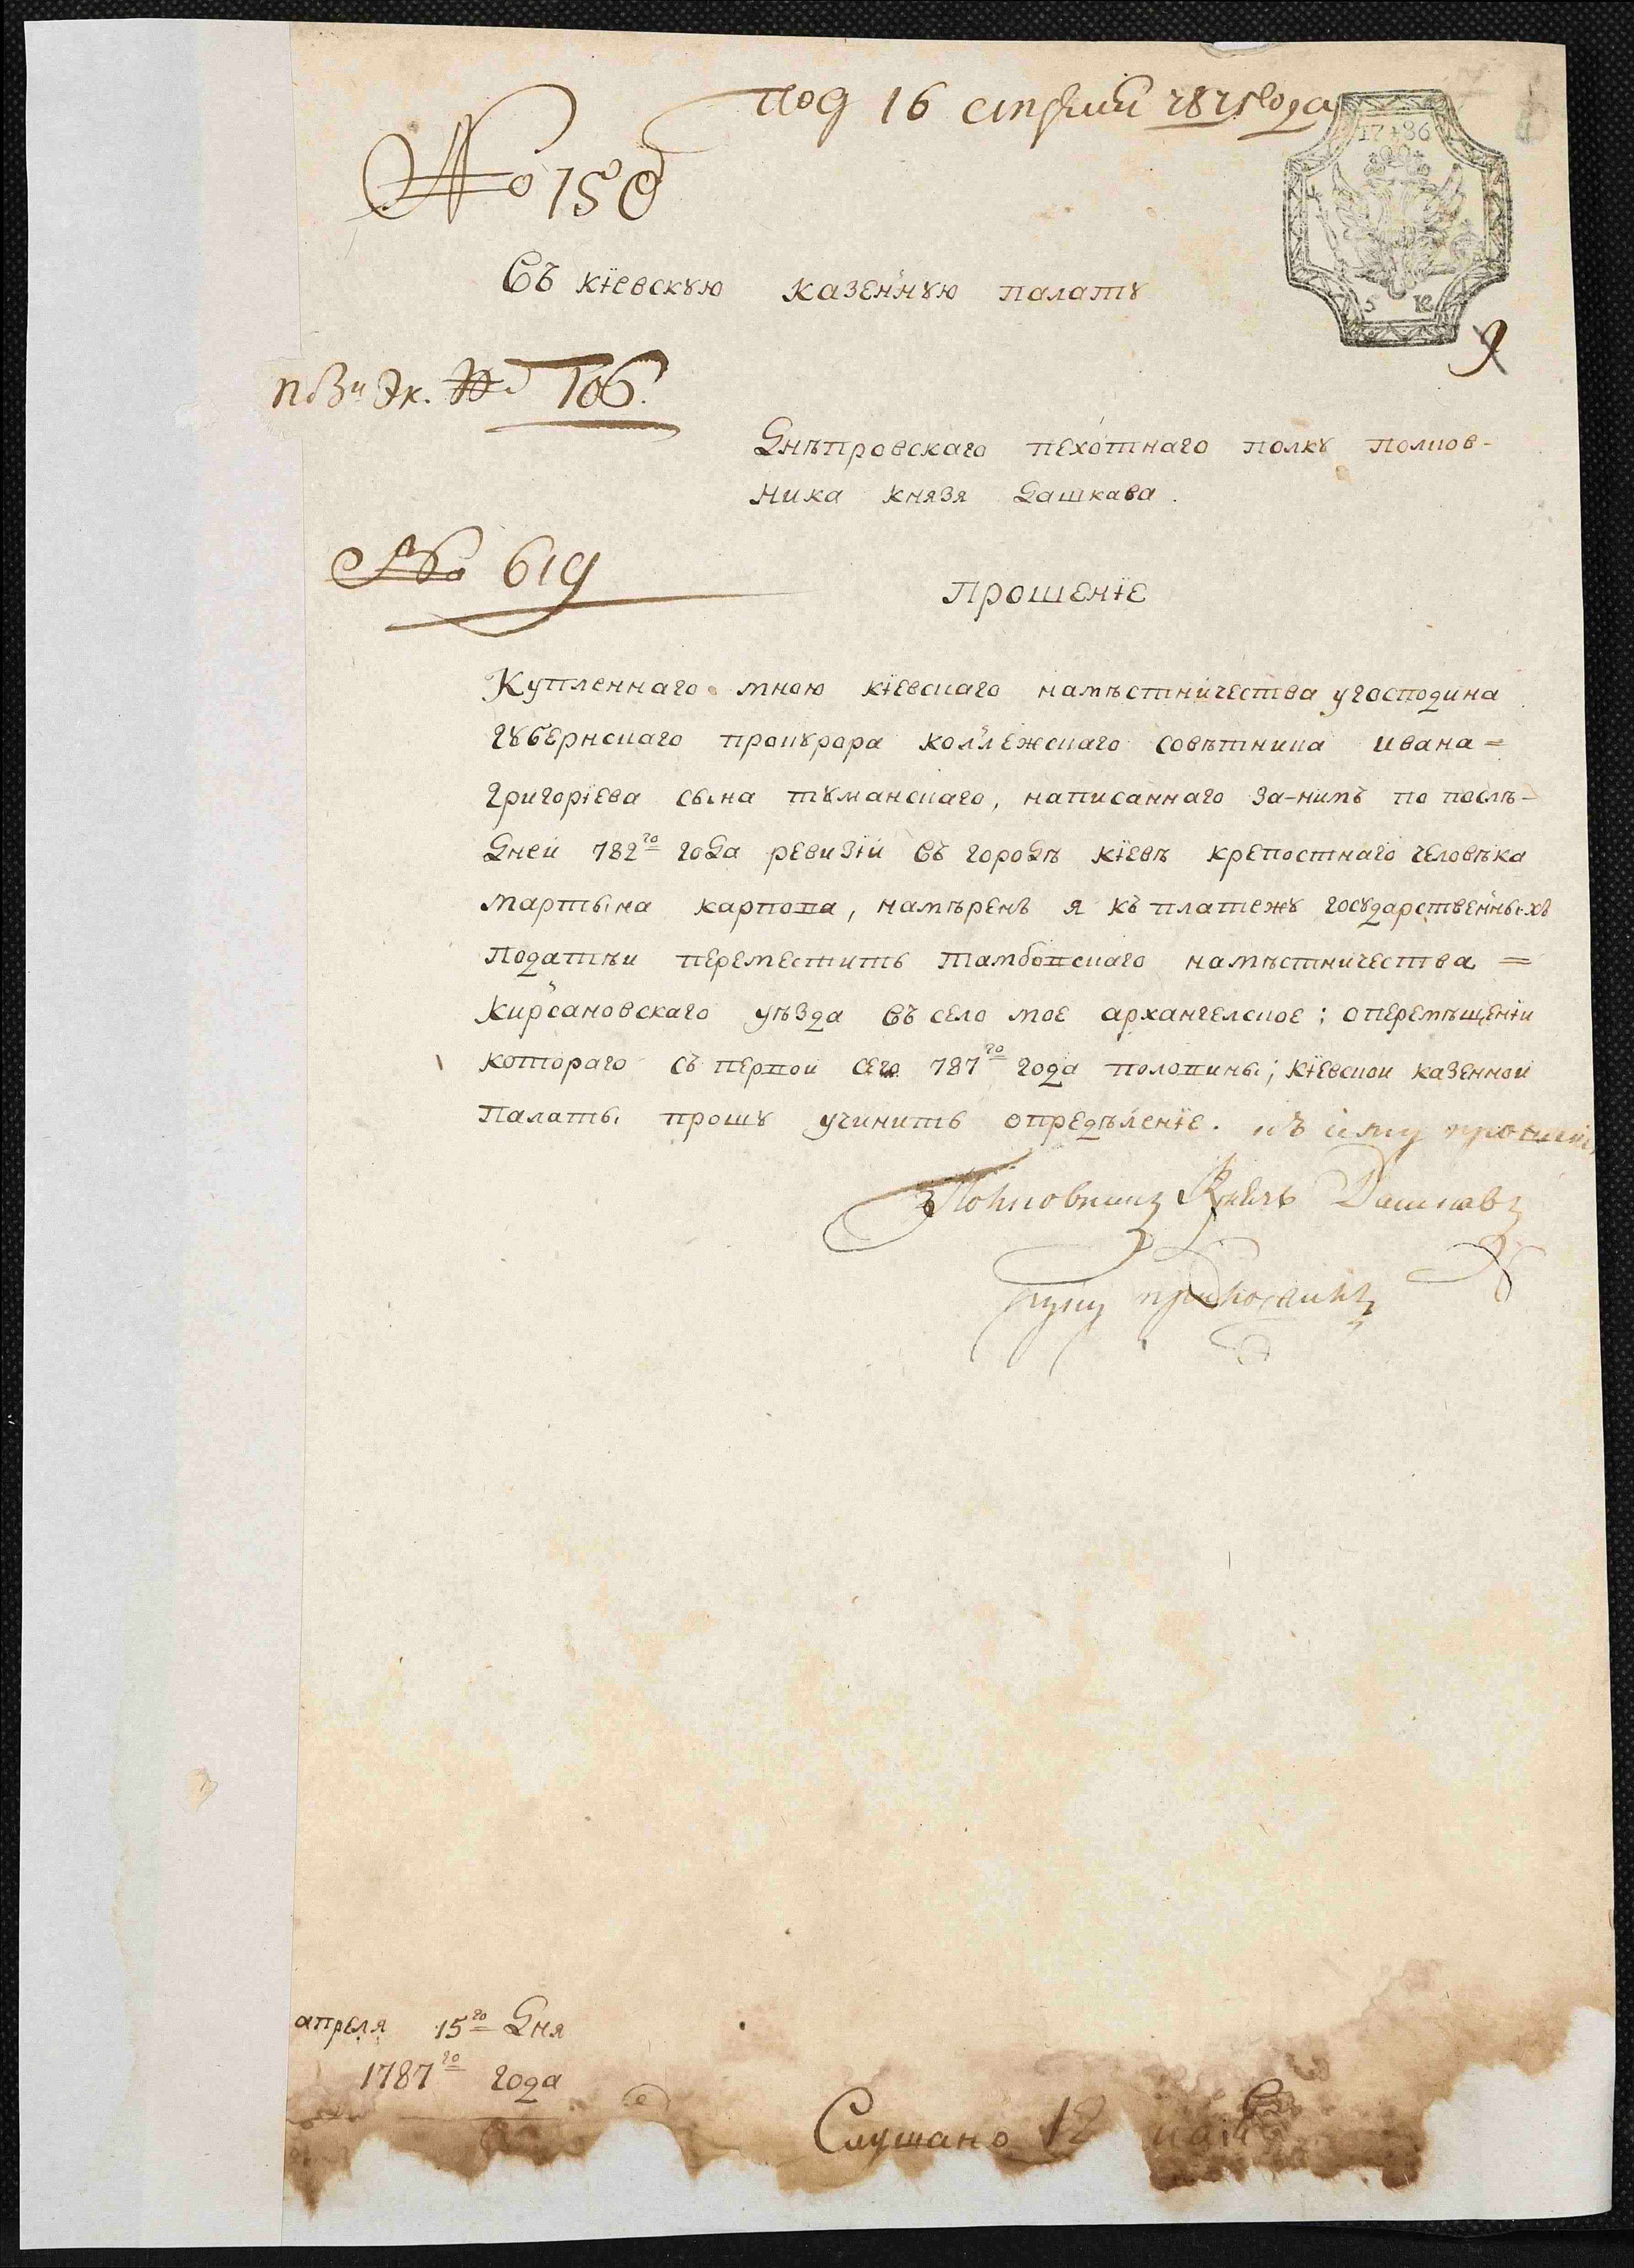 под 16
1786
№ 150
Въ кіевскую казенную палату
5 К
№ 106.
Днѣпровскаго пехотнаго полку полков-
ника князя Дашкава.
№ 619
прошеніе
Купленнаго мною кіевскаго намѣстничества у господина
губернскаго прокурора коллежскаго совѣтника ивана=
григоріева сына туманскаго, написаннаго за-нимъ по послѣ-
дней 782го года ревизіи въ городѣ кіевѣ крепостнаго человѣка
мартына карпова, намѣренъ я къ платежу государственныхъ
податѣи переместить тамбовскаго намѣстничества=
кирсановскаго уѣзда въ село мое архангелское; о перемѣщеніи
котораго съ первой сего 787го года половины; кіевской казенной
палаты прошу учинить опредѣленіе. къ сему прошенію
Полковникъ Князь Дашкавъ
руку приложилъ
апреля 15го дня
1787го года
Слушано 12 маія